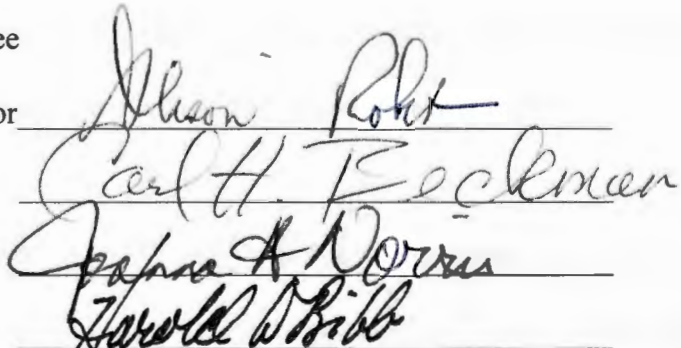 ee
or Alison Rohr
Carl H. Beckman
Joanna A Norris
Harold D Bibb